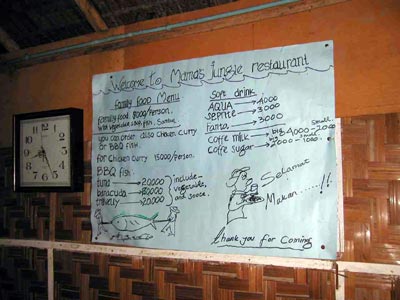 Welcome to Mama's Jungle restaurant
family food Menu
family food 8000/Person.
with vegetable fish. Sambal
you can order also Chicken Curry
Or BBQ fish.
for Chicken curry 15000/Person.
BBQ fish
tuna 20000
baracuda 20000
travelly 20000
include
vegetable,
and souce.
Soft drink.
AQUA 4000
SEPRITE 3000
Fanta 3000
Coffe milk big 4000 - small 2000
Coffe sugar big 2000 - small 1000.
Selamat
Makan...!!
thank you for Coming